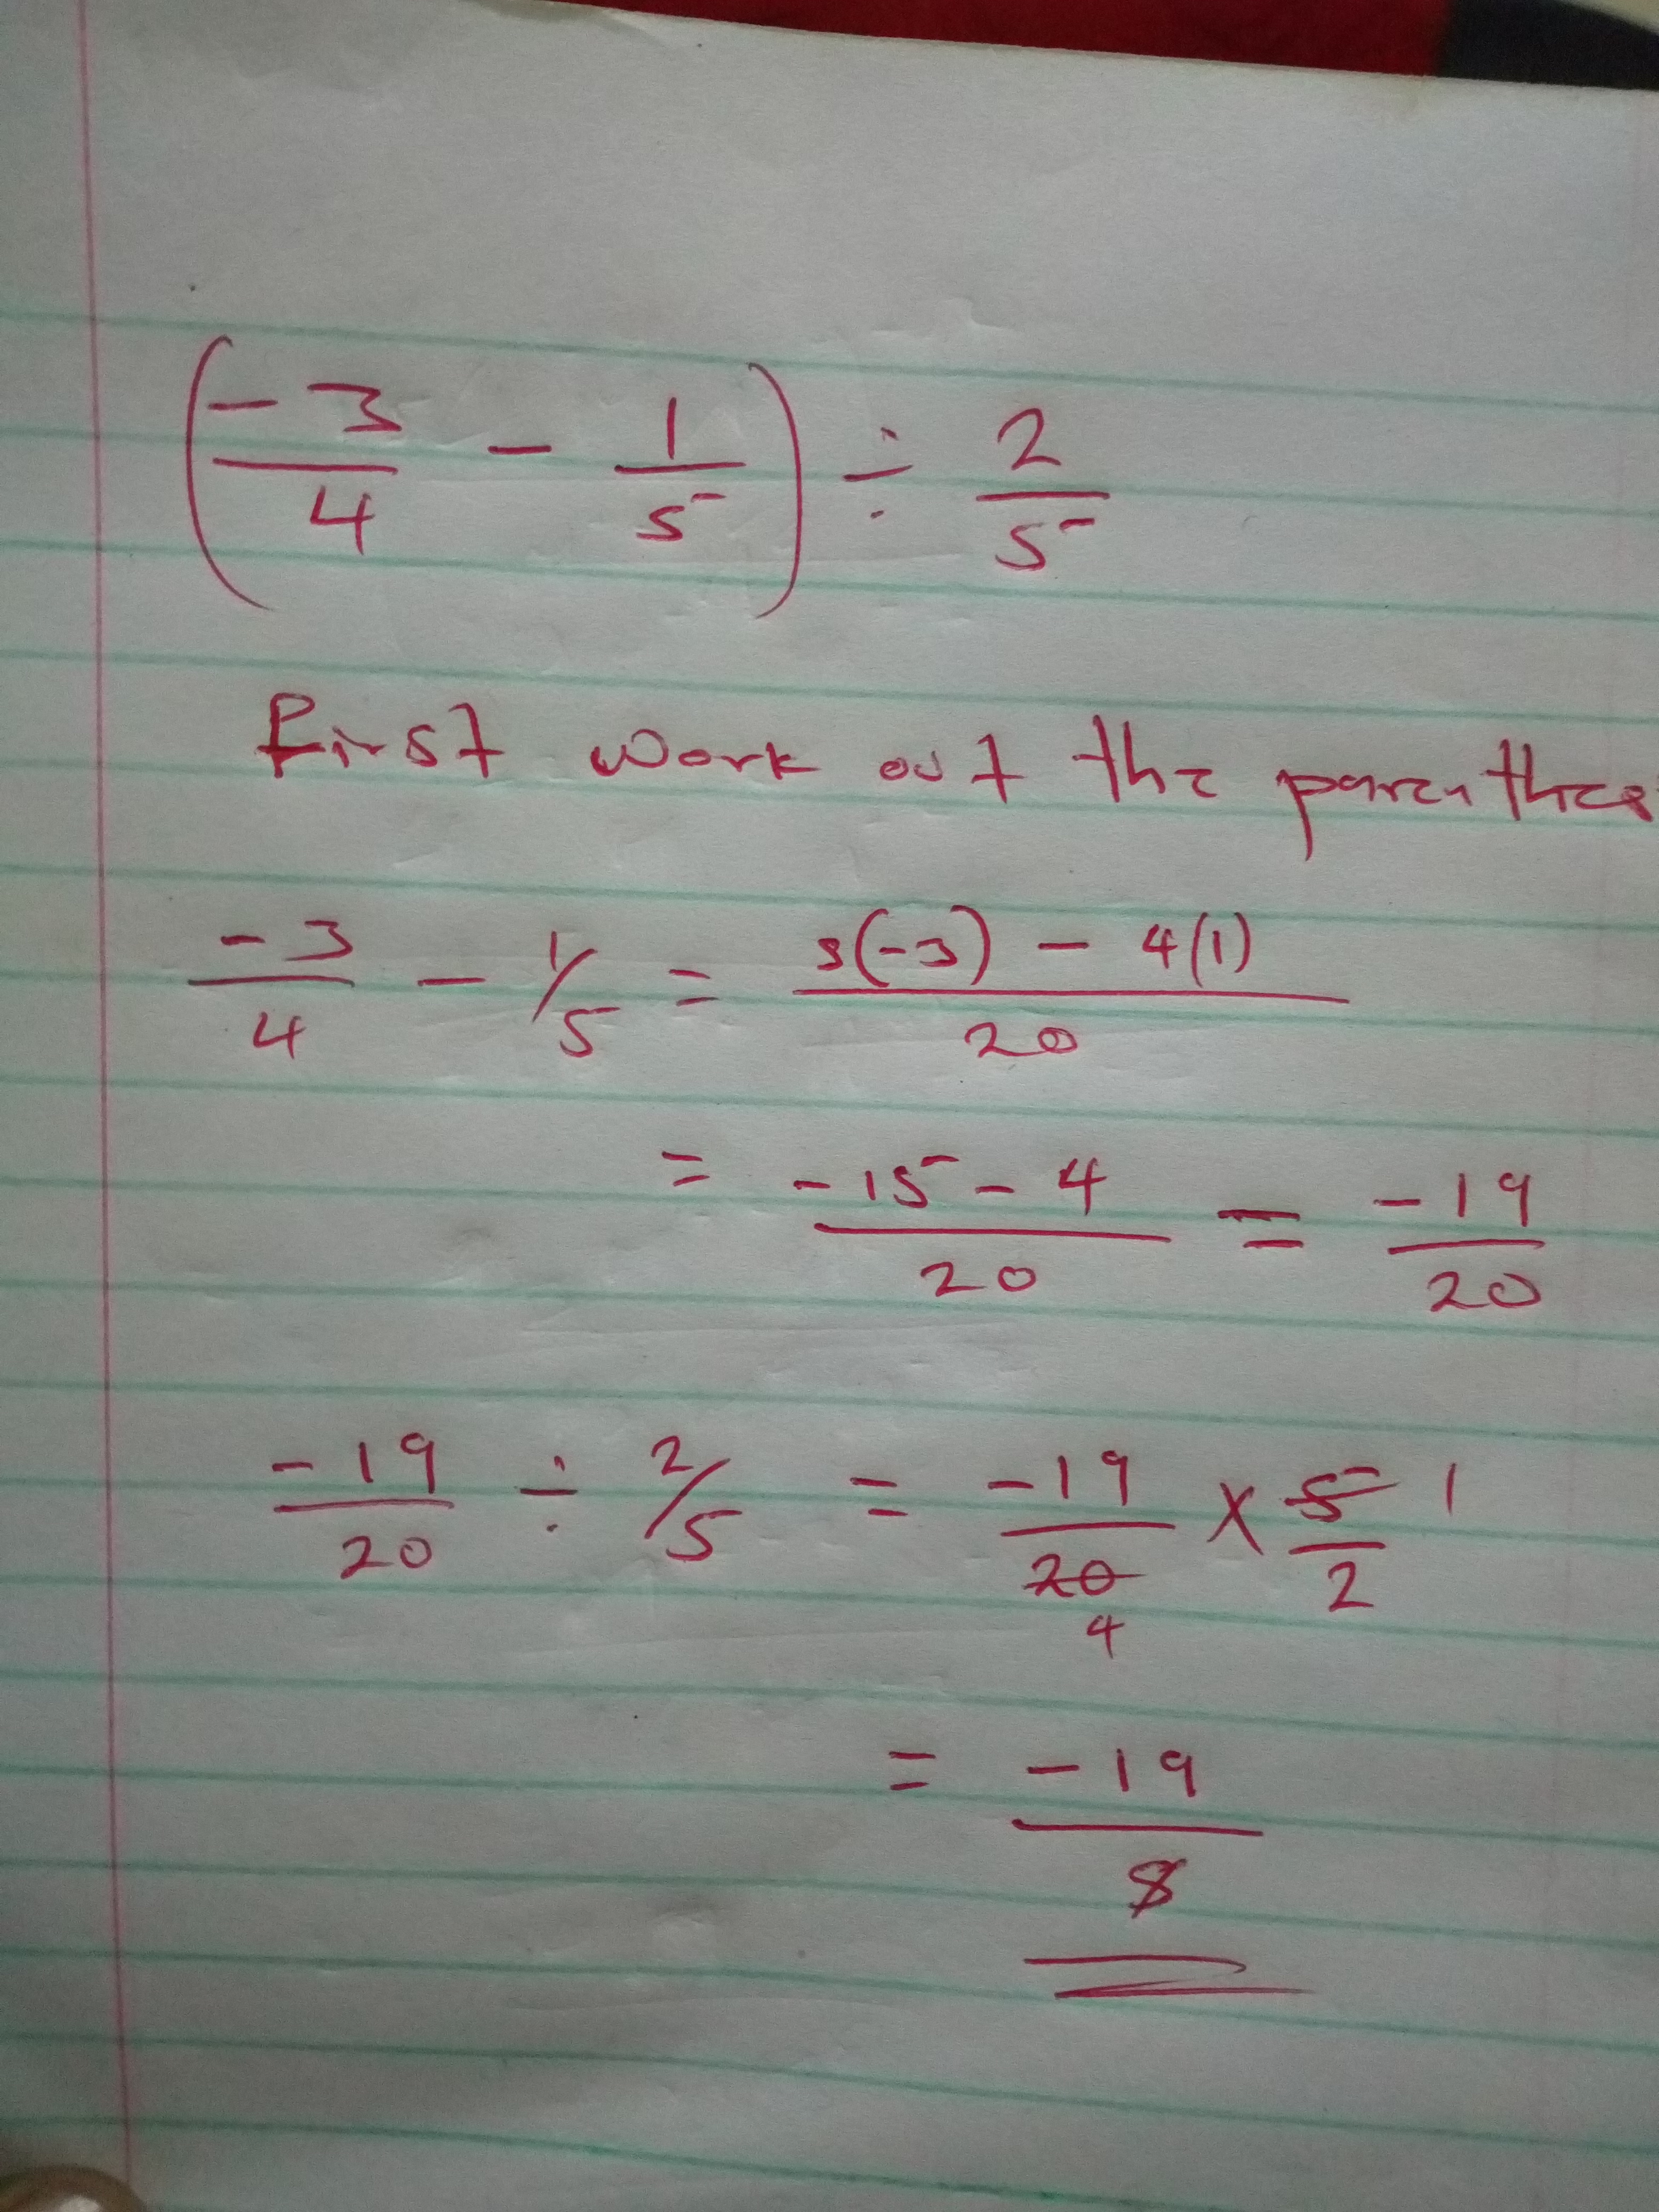 (-3/4 - 1/5) ÷ 2/5
First work out the parenthes
-3/4 - 1/5 = 5(-3) - 4(1)/20
= -15 - 4/20 = -19/20
-19/20 ÷ 2/5 = -19/20 4 × 5/2 1
= -19/8